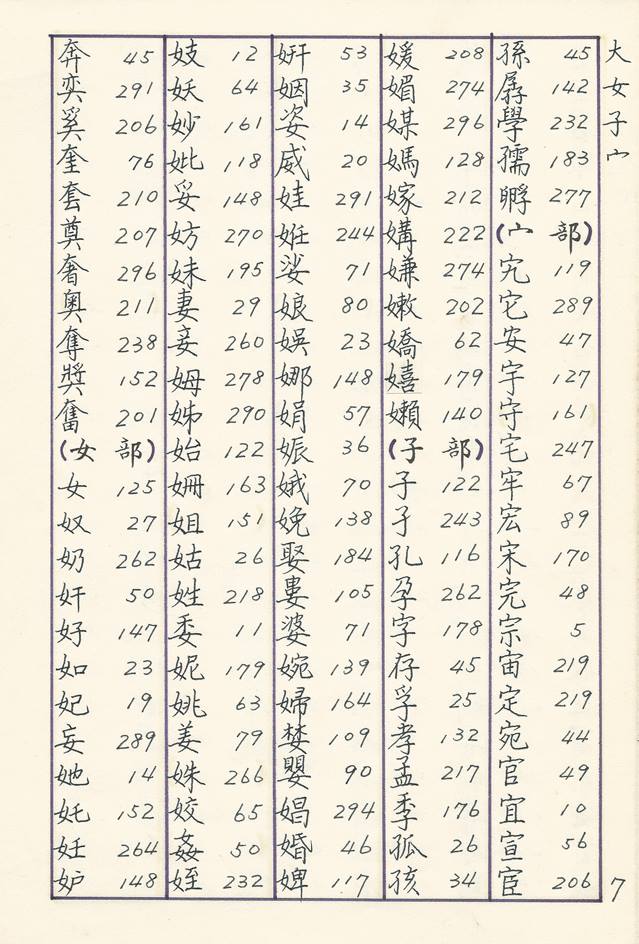 奔 45
奕 291
奚 206
奎 76
套 210
奠 207
奢 296
奧 211
奪 238
獎 152
奮 201
(女 部)
女 125
奴 27
奶 262
奸 50
好 147
如 23
妃 19
妄 289
她 14
妊 264
妒 148
妓 12
妖 64
妙 161
妣 118
妥 148
妨 270
妹 195
妻 29
妾 260
姆 278
姊 290
始 122
姍 163
姐 151
姑 26
姓 218
委 11
妮 179
姚 63
姜 79
姝 266
姣 65
姦 50
姪 232
姸 53
姻 35
姿 14
威 20
娃 291
姙 244
娑 71
娘 80
娛 23
娜 148
娟 57
娠 36
娥 70
娩 138
娶 184
婁 105
婆 71
婉 139
婦 164
婪 109
嬰 90
娼 294
婚 46
婢 117
媛 208
媚 274
媒 296
媽 128
嫁 212
媾 222
嫌 274
嫩 202
嬌 62
嬉 179
嬾 140
(子 部)
子 122
孑 243
孔 116
孕 262
字 178
存 45
孚 25
孝 132
孟 217
季 176
孤 26
孩 34
孫 45
孱 142
學 232
孺 183
孵 277
(宀 部)
宄 119
它 289
安 47
宇 127
守 161
宅 247
牢 67
宏 89
宋 170
完 48
宗 5
宙 219
定 219
宛 44
官 49
宜 10
宣 56
宦 206
大女子宀
7